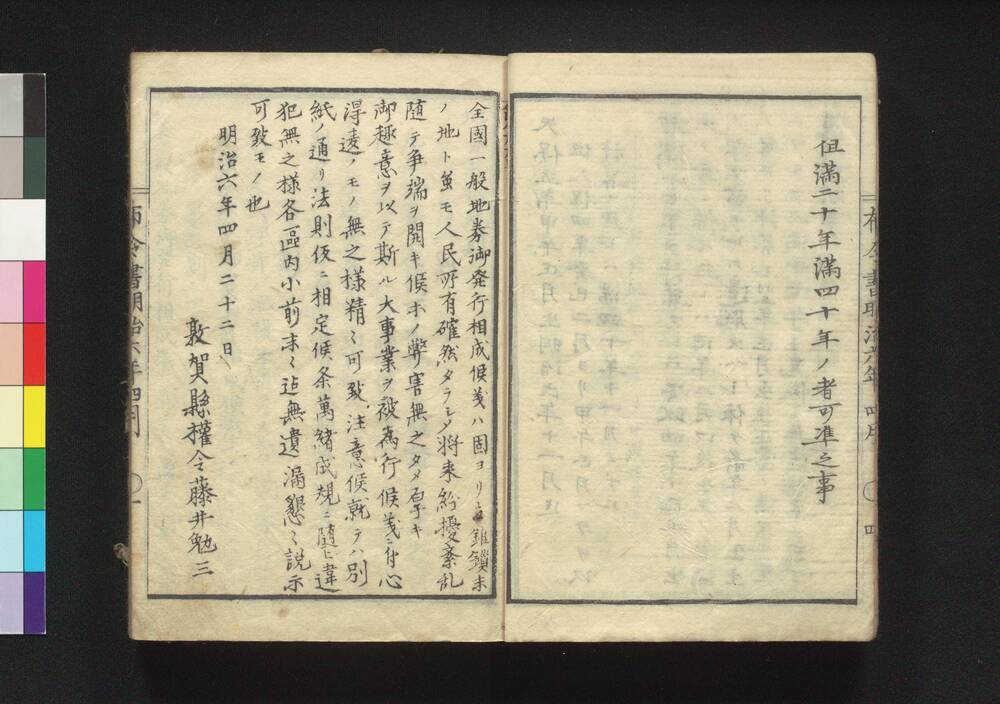 布令書明治六年 四月 〇 四
但満二十年満四十年ノ者可準之事
全國一般地券御発行相成候義ハ固ヨリ立錐鎖末
ノ地ト虽モ人民所有確然タラシメ将来紛擾紊乱
随テ争端ヲ開キ候ホノ弊害無之タメ厚キ
御趣意ヲ以テ斯ル大事業ヲ被為行候義ニ付心
得違ノモノ無之様精々可致注意候就テハ別
紙ノ通リ法則仮ニ相定候条萬緒成規ニ隨ヒ違
犯無之様各區内小前末々迠無遺漏懇々説示
可致モノ也
明治六年四月二十二日
敦賀縣權令藤井勉三
布令書明治六年四月 〇一